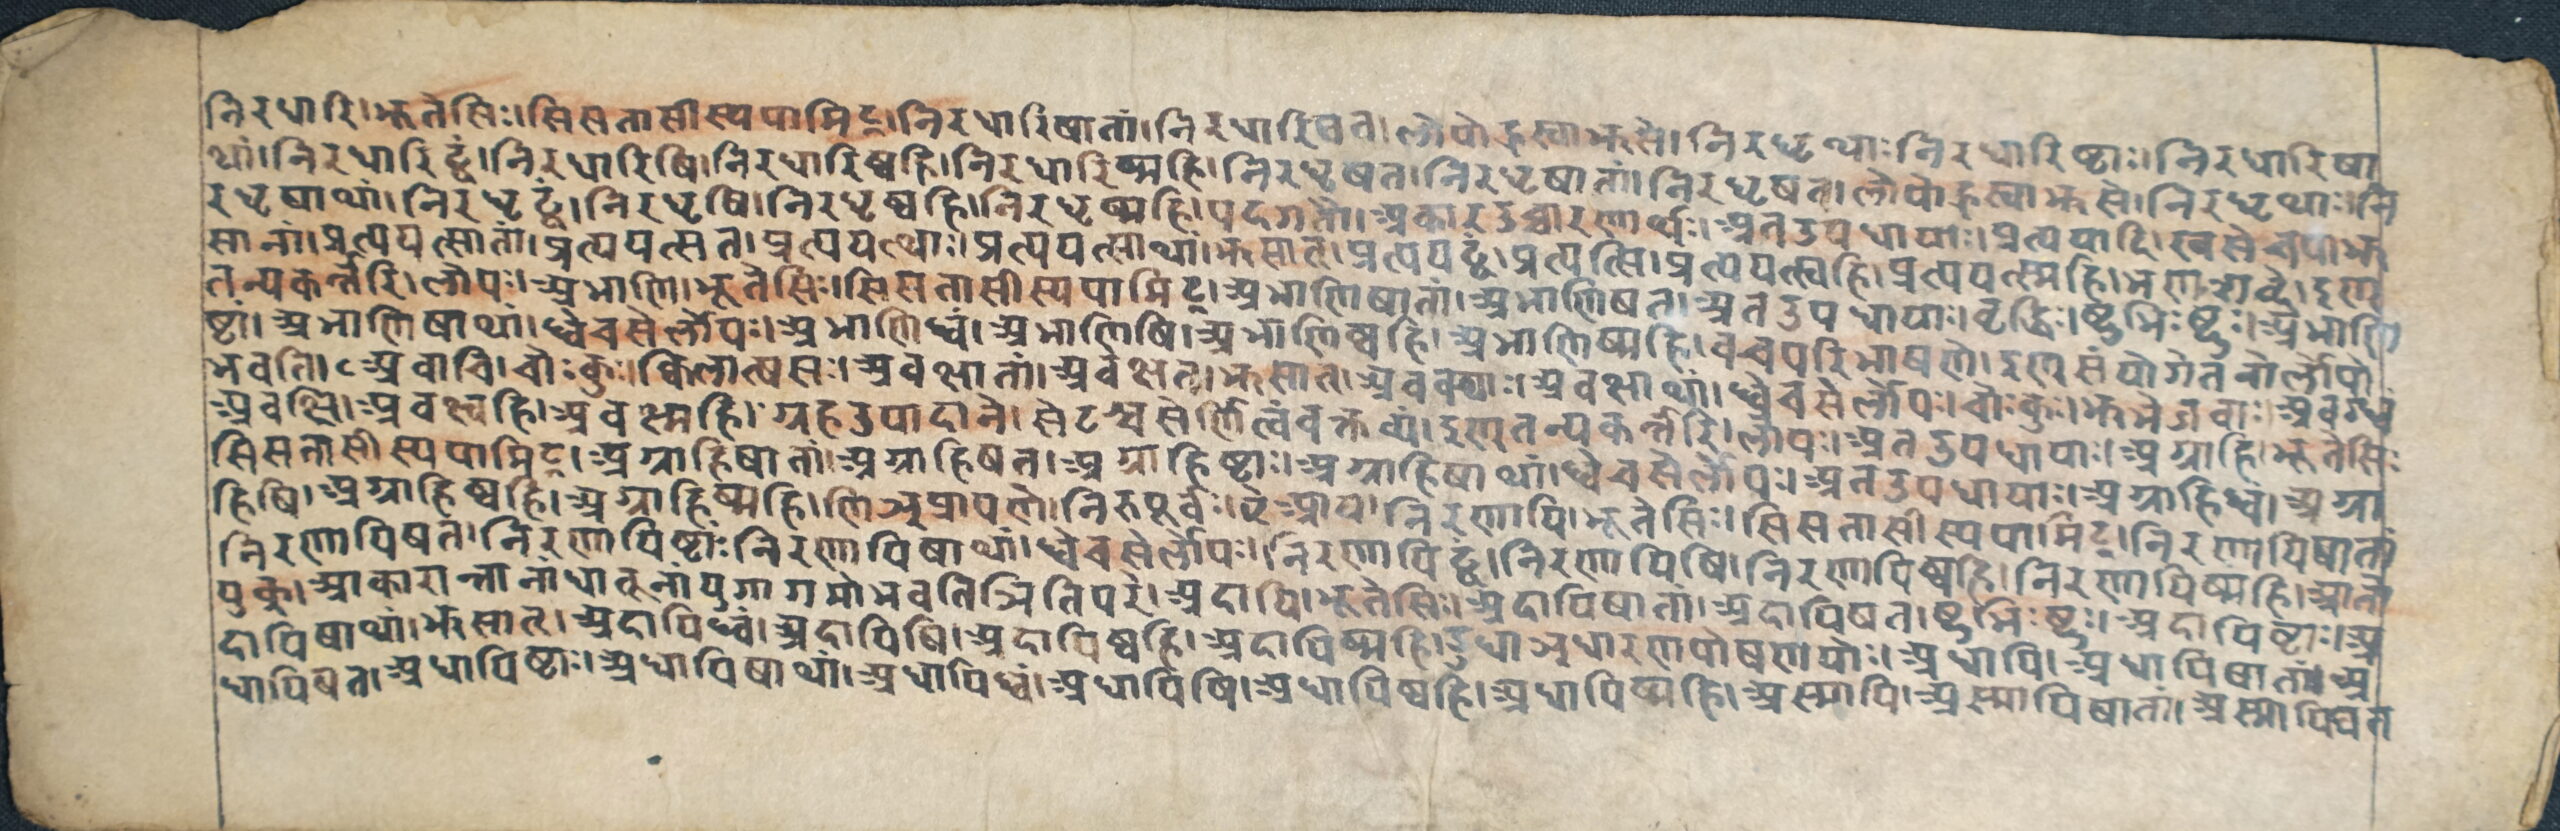 निरधारि।भूतेसिः।सिसतासीस्यपामिट्।निरधारिषातां।निरधारिषत।लोपोह्रस्वाझसे।निरधृथाः निरधारिष्टाः।निरधारिषा
थां।निरधारिढ्वं।निरधारिषि।निरधारिष्वहि।निरधारिष्महि।निरधृषत।निरधृषातां।निरधृषत।लोपोह्रस्वाझसे।निरधृथाः।नि
रधृषाथां।निरधृढ्वं।निरधृषि।निरधृष्वहि।निरधृष्महि।पदगतौ।अकारउच्चारणार्थः।अतउपधायाः।प्रत्यपादि।खसेचपाझ
सानां।प्रत्यपत्सातां।प्रत्यपत्सत।प्रत्यपत्थाः।प्रत्यपत्साथां।झसात्।प्रत्यपद्ध्वं।प्रत्यपत्सि।प्रत्यपत्स्वहि।प्रत्यपत्स्महि।भणशब्दे।इण्
तन्यकर्त्तरि।लोपः।अभाणि।भूतेसिः।सिसतासीस्यपामिट्।अभाणिषातां।अभाणिषत।अतउपधायाः।वृद्धिः।ष्टुभिःष्टुः।अभाणि
ष्टां।अभाणिषाथां।ध्वेचसेर्लोपः।अभाणिध्वं।अभाणिषि।अभाणिष्वहि।अभाणिष्महि।वचपरिभाषणे।इण्संयोगेतनोर्लोपो
भवति।अवाचि।चोःकुः।क्विलात्षसः।अवक्षातां।अवक्षत।झसात्।अवक्थाः।अवक्षाथां।ध्वेचसेर्लोपः।चोःकुः।झभेजबाः।अवग्ध्वं
अवक्षि।अवक्ष्वहि।अवक्ष्महि।ग्रहउपादाने।सेटश्चसेर्णित्वंवक्तव्यं।इण्तन्यकर्त्तरि।लोपः।अतउपधायाः।अग्राहि।भूतेसिः
सिसतासीस्यपामिट्।अग्राहिषातां।अग्राहिषत।अग्राहिष्टाः।अग्राहिषाथां।ध्वेचसेर्लोपः।अतउपधायाः।अग्राहिध्वं।अग्रा
हिषि।अग्राहिष्वहि।अग्राहिष्महि।णिञ्प्रापणे।निरुपूर्वः।निरणायि।भूतेसिः।सिसतासीस्यपामिट्।निरणायिषातां
निरणायिषत।निरणायिष्टां।निरणायिषाथां।ध्वेचसेर्लोपः।निरणायिढ्वं।निरणायिषि।निरणायिष्वहि।निरणायिष्महि।आतो
युक्।आकारान्तानांधातूनांयुगागमोभवतिञितिपरे।अदायि।भूतेसिः।अदायिषातां।अदायिषत।ष्टुभिःष्टुः।अदायिष्टाः।अ
दायिषाथां।झसात्।अदायिध्वं।अदायिषि।अदायिष्वहि।अदायिष्महि।डुधाञ्धारणपोषणयोः।अधायि।अधायिषातां।अ
धायिषत।अधायिष्टाः।अधायिषाथां।अधायिध्वं।अधायिषि।अधायिष्वहि।अधायिष्महि।अस्मायि।अस्मायिषातां।अस्मायिषत